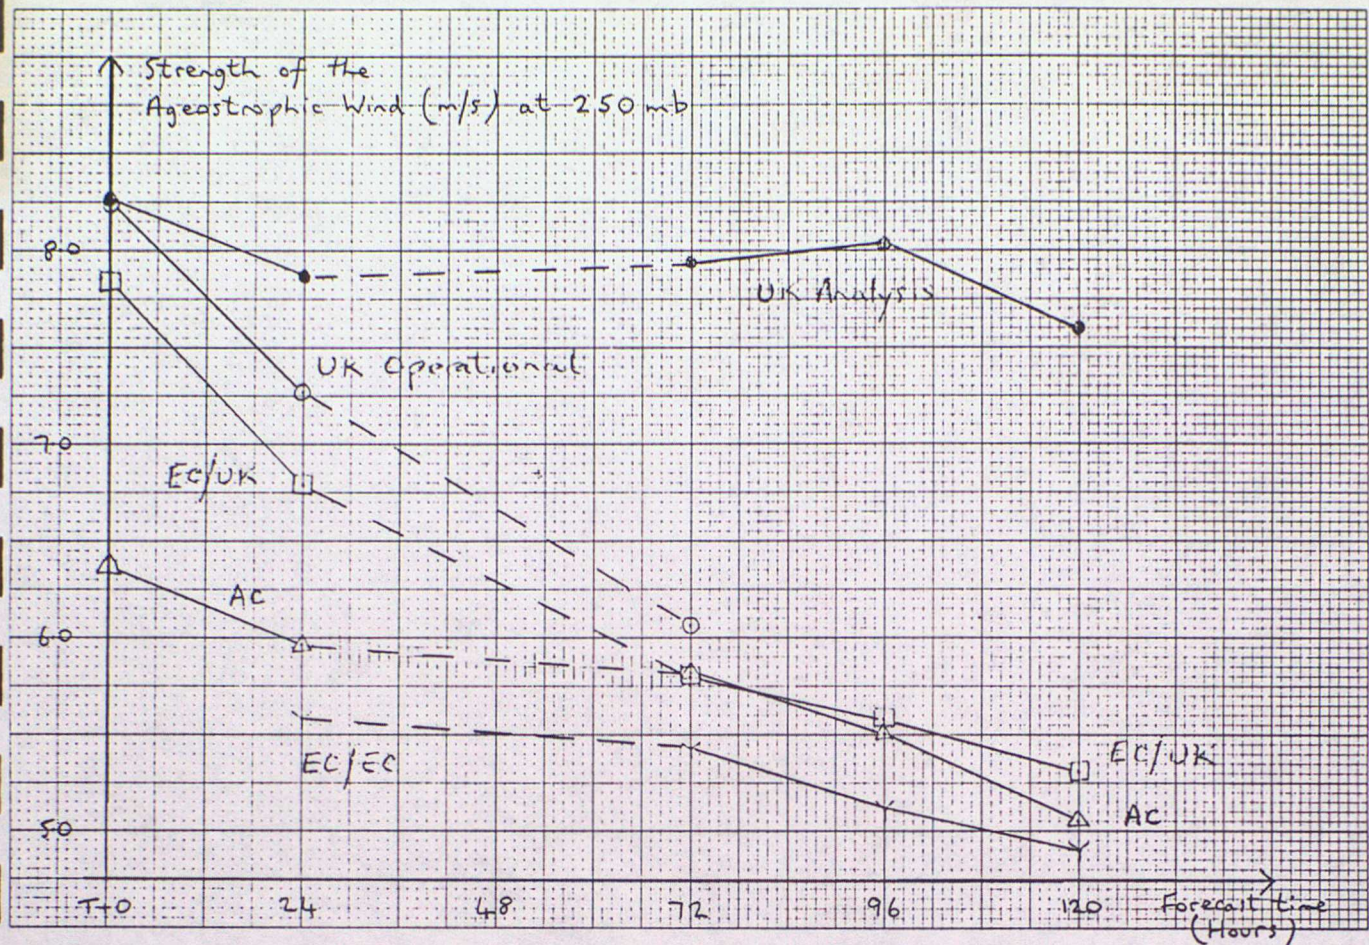 Strength of the
Ageostrophic Wind (m/s) at 250 mb
8.0
UK Analysis
UK Operational
7.0
EC/UK
AC
6.0
EC/EC
EC/UK
AC
5.0
T+0 24 48 72 96 120 Forecast time
(Hours)